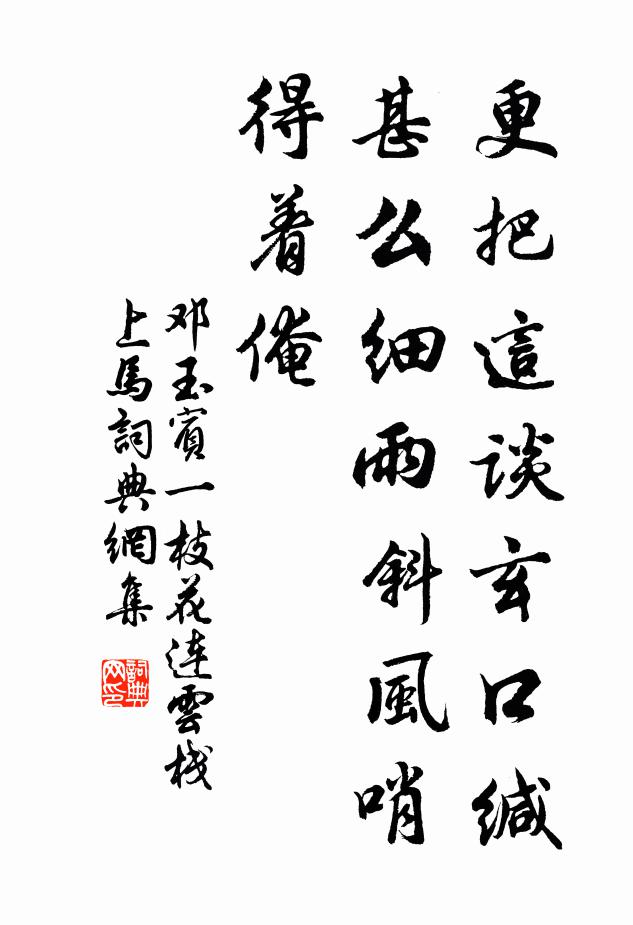 更把這谈玄口缄
甚么细雨斜風哨
得着俺
邓玉賓一枝花連雲栈
上馬詞典網集
詞典网印